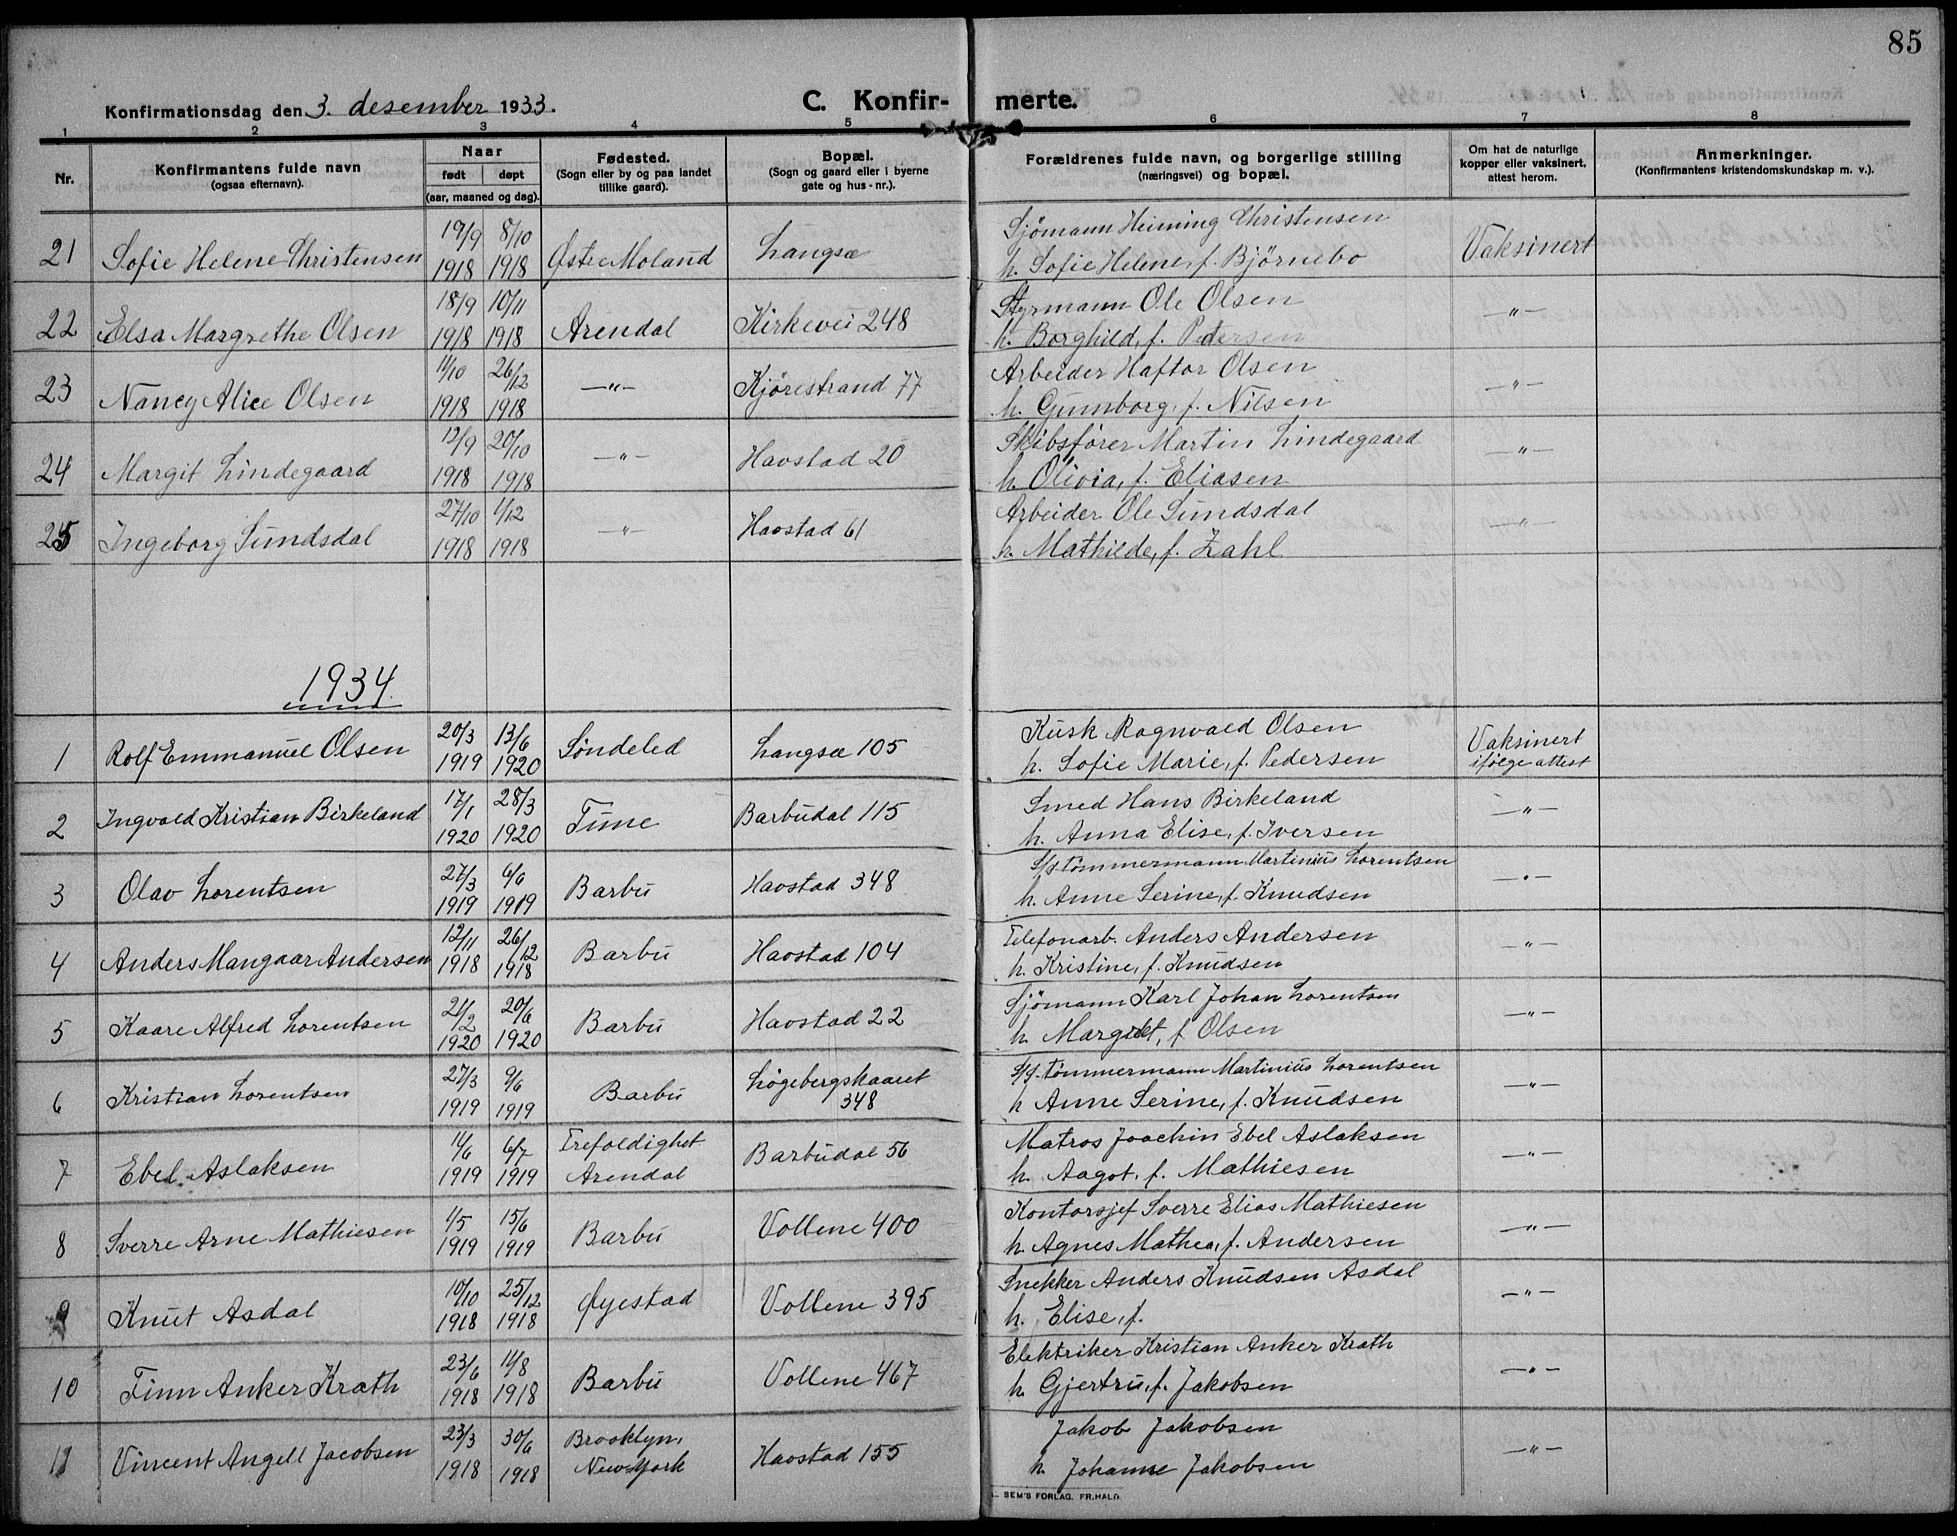 85
Konfirmationsdag den 3. desember 1933.
C. Konfir- merte.
1 2 3 4 5 6 7 8
Nr.
Konfirmantens fulde navn
(ogsaa efternavn).
Naar
født døpt
(aar, maaned og dag).
Fødested.
(Sogn eller by og paa landet
tillike gaard).
Bopæl.
(Sogn og gaard eller i byerne
gate og hus-nr.).
Forældrenes fulde navn, og borgerlige stilling
(næringsvei) og bopæl.
Om hat de naturlige
kopper eller vaksinert,
attest herom.
Anmerkninger.
(Konfirmantens kristendomskundskap m. v.).
19/9 8/10 Sjömann Heining Christensen
21 Sofie Helene Christensen 1918 1918 Østre Moland Langsæ h. Sofie Helene, f. Bjørnebo Vaksinert
18/9 10/11 Styrmann Ole Olsen
22 Elsa Margrethe Olsen 1918 1918 Arendal Kirkevei 248 h. Borghild, f. Pedersen —"—
11/10 26/12 Arbeider Haftor Olsen
23 Nancy Alice Olsen 1918 1918 —"— Kjörestrand 77 h. Gunnborg, f. Nilsen —"—
12/9 20/10 Skibsfører Martin Lindegaard
24 Margit Lindegaard 1918 1918 —"— Havstad 20 h. Olivia, f. Eliasen —"—
27/10 1/12 Arbeider Ole Sundsdal
25 Ingeborg Sundsdal 1918 1918 —"— Havstad 61 h. Mathilde, f. Zahl —"—
1934.
20/3 13/6 Kusk Ragnvald Olsen Vaksinert
1 Rolf Emmanuel Olsen 1919 1920 Søndeled Langsæ 105 h. Sofie Marie, f. Pedersen ifølge attest
17/1 28/3 Smed Hans Birkeland
2 Ingvald Kristian Birkeland 1920 1920 Tune Barbudal 115 h. Anna Elise, f. Iversen —"—
27/3 6/6 S/S tømmermann Martinius Lorentsen
3 Olav Lorentsen 1919 1919 Barbu Havstad 348 h. Anne Serine, f. Knudsen —"—
12/11 26/12 Telefonarb. Anders Andersen
4 Anders Mangaar Andersen 1918 1918 Barbu Havstad 104 h. Kristine, f. Knudsen —"—
21/2 20/6 Sjömann Karl Johan Lorentsen
5 Kaare Alfred Lorentsen 1920 1920 Barbu Havstad 22 h. Margit, f. Olsen —"—
27/3 9/6 Løgebergskaaret S/S. tømmermann Martinius Lorentsen
6 Kristian Lorentsen 1919 1919 Barbu 348 h Anne Serine, f. Knudsen —"—
11/6 6/7 Trefoldighet Matros Joachin Ebel Aslaksen
7 Ebel Aslaksen 1919 1919 Arendal Barbudal 56 h. Aagot, f. Mathiesen —"—
1/5 15/6 Kontorsjef Sverre Elias Mathiesen
8 Sverre Arne Mathiesen 1919 1919 Barbu Vollene 400 h. Agnes Mathea, f. Andersen —"—
10/10 25/12 Snekker Anders Knudsen Asdal
9 Knut Asdal 1918 1918 Øyestad Vollene 395 h. Elise, f. —"—
23/6 11/8 Elektriker Kristian Anker Krath
10 Finn Anker Krath 1918 1918 Barbu Vollene 467 h. Gjertru, f. Jakobsen —"—
23/3 30/6 Brooklyn, Jakob Jakobsen
11 Vincent Angell Jacobsen 1918 1918 New York Havstad 155 h. Johanne Jakobsen —"—
SEM'S FORLAG. FR.HALD.